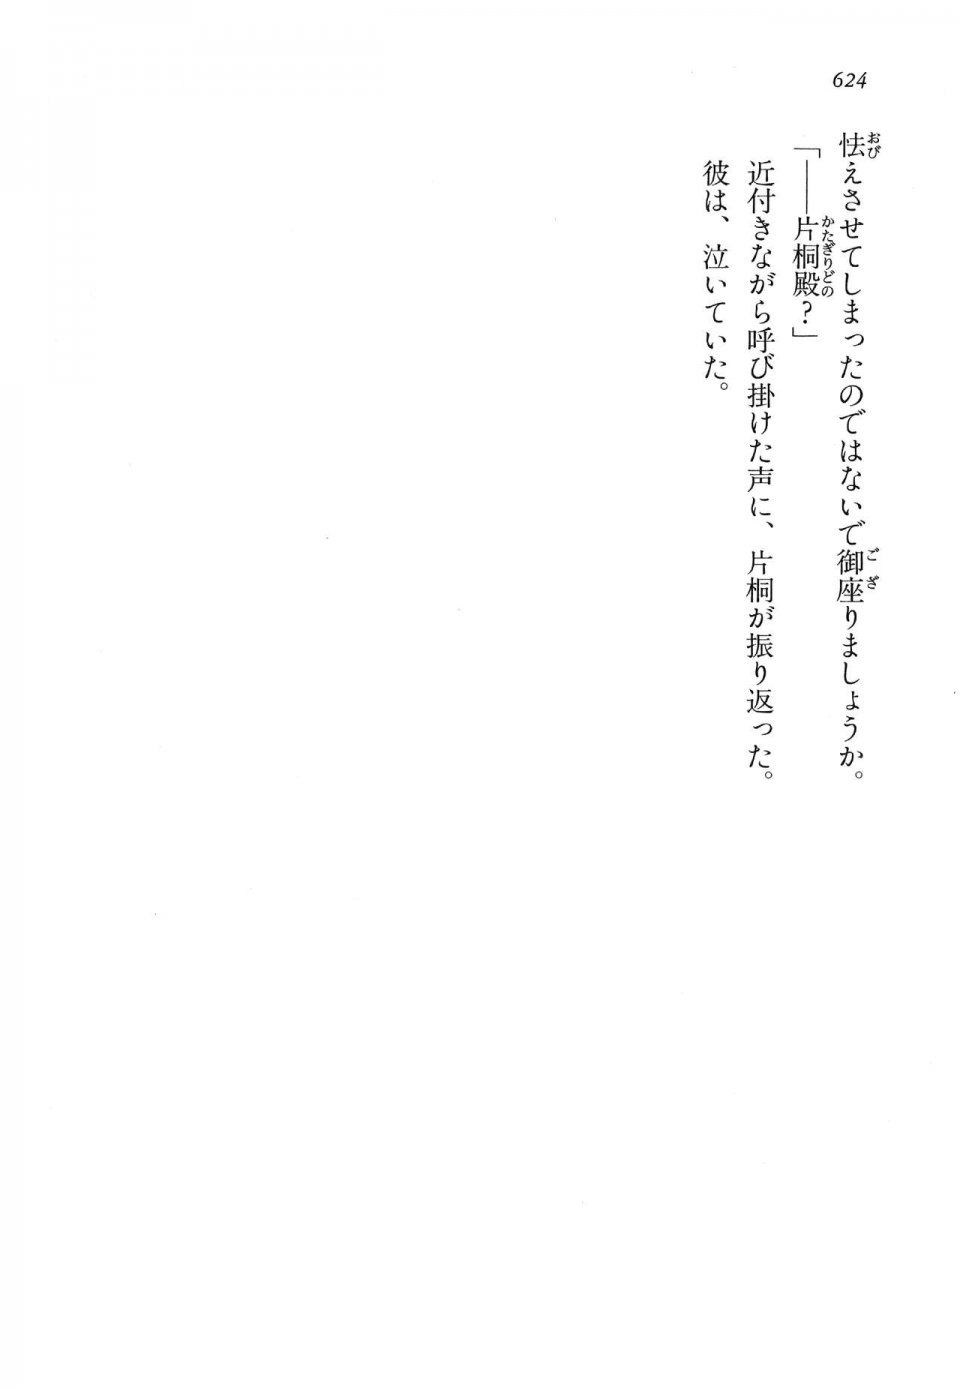 624
怯えさせてしまったのではないで御座りましょうか。
「――片桐殿？」
近付きながら呼び掛けた声に、片桐が振り返った。
彼は、泣いていた。